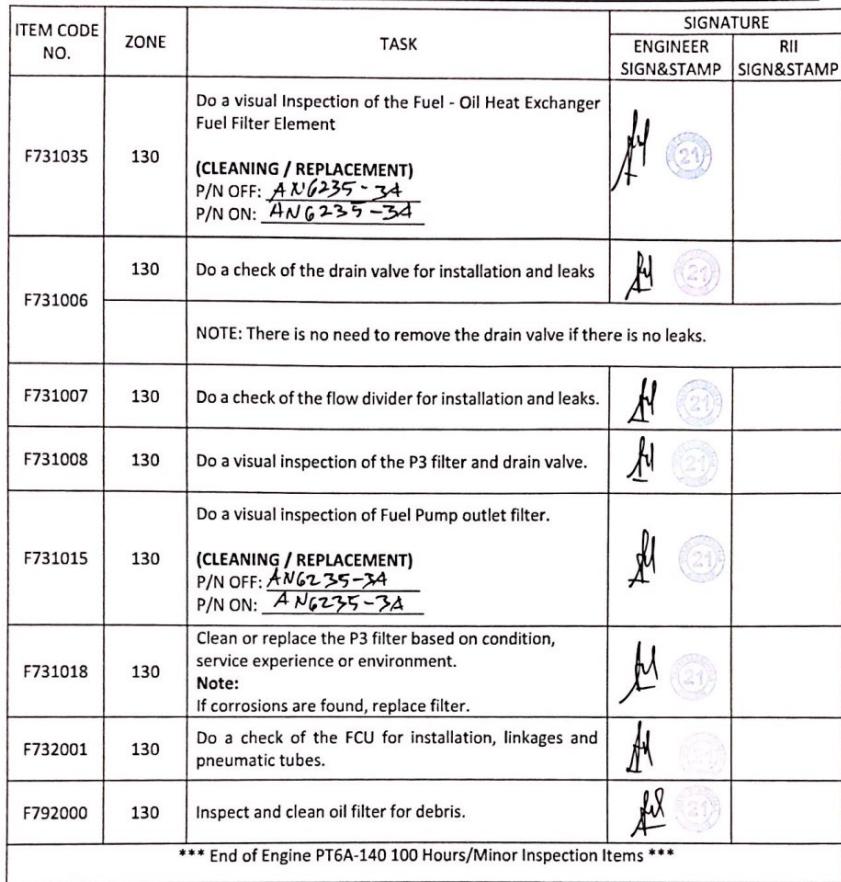 ITEM CODE NO.
ZONE
TASK
SIGNATURE
ENGINEER SIGN&STAMP
RII SIGN&STAMP
F731035
130
Do a visual Inspection of the Fuel - Oil Heat Exchanger
Fuel Filter Element
(CLEANING / REPLACEMENT)
P/N OFF: AN6235-3A
P/N ON: AN6235-3A
21
F731006
130
Do a check of the drain valve for installation and leaks
21
NOTE: There is no need to remove the drain valve if there is no leaks.
F731007
130
Do a check of the flow divider for installation and leaks.
21
F731008
130
Do a visual inspection of the P3 filter and drain valve.
21
F731015
130
Do a visual inspection of Fuel Pump outlet filter.
(CLEANING / REPLACEMENT)
P/N OFF: AN6235-3A
P/N ON: AN6235-3A
21
F731018
130
Clean or replace the P3 filter based on condition,
service experience or environment.
Note:
If corrosions are found, replace filter.
21
F732001
130
Do a check of the FCU for installation, linkages and
pneumatic tubes.
21
F792000
130
Inspect and clean oil filter for debris.
21
*** End of Engine PT6A-140 100 Hours/Minor Inspection Items ***